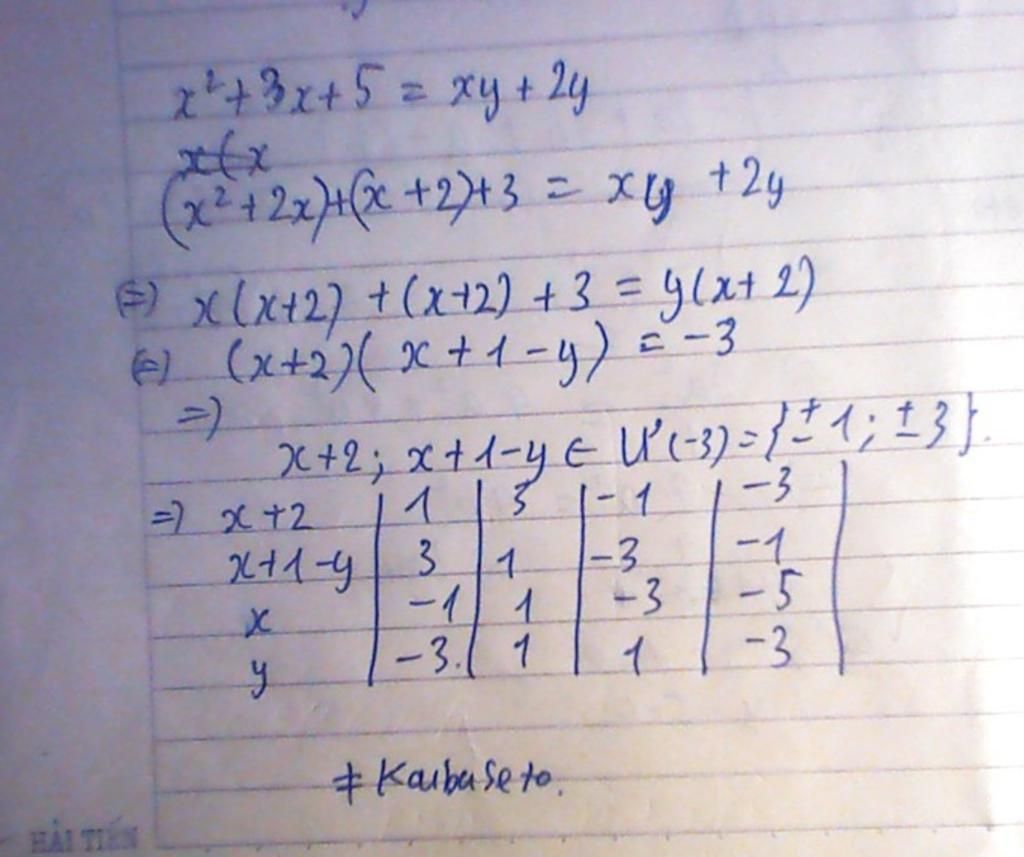 x² + 3x + 5 = xy + 2y
x(x
(x² + 2x) + (x + 2) + 3 = xy + 2y
(=) x(x+2) + (x+2) + 3 = y(x+2)
(=) (x+2)(x + 1 - y) = -3
=)
x+2; x+1-y ∈ Ư(-3) = {±1; ±3}.
=) x+2 | 1 | 3 | -1 | -3 |
x+1-y | 3 | 1 | -3 | -1
x | -1 | 1 | -3 | -5
y | -3. | 1 | 1 | -3
≠ Kaibaseto.
HẢI TIẾN